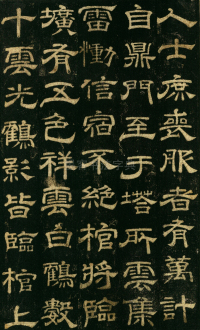 人士庶喪服者有萬計
自鼎門至于塔所雲集
雷慟信宿不絕棺將臨
壙有五色祥雲白鶴數
十雲光鶴影皆臨棺上